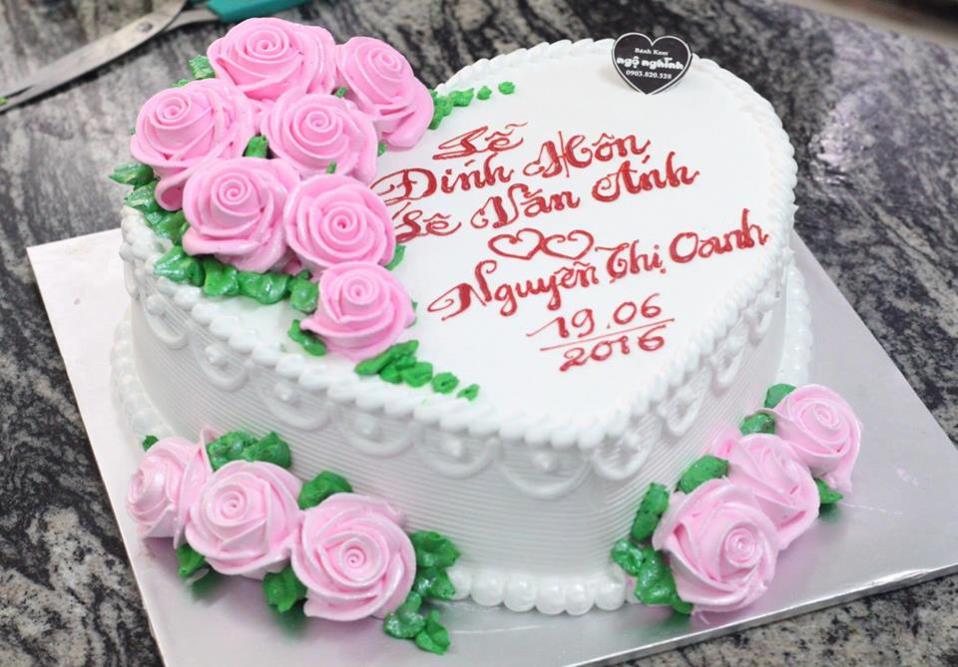 Bánh Kem
ngộ nghĩnh
0903.820.328
Lễ
Đính Hôn
Lê Văn Ánh
Nguyễn Thị Oanh
19.06
2016